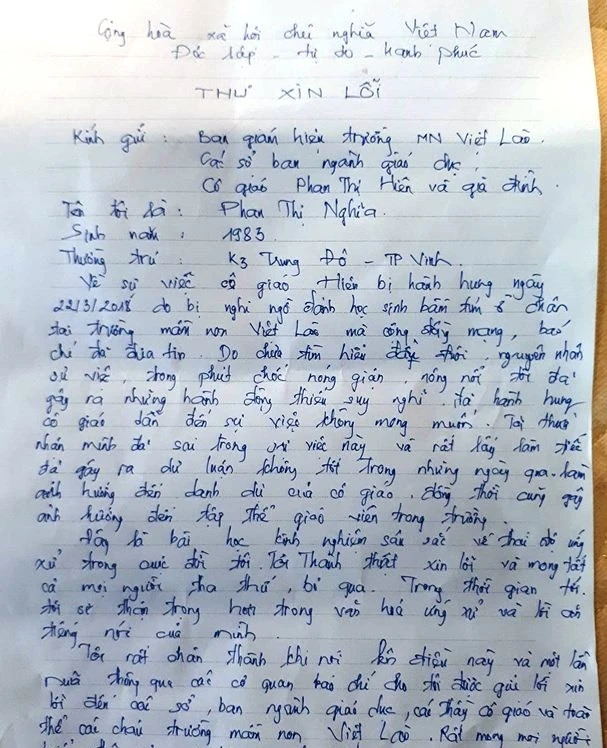 Cộng hoà xã hội chủ nghĩa Việt Nam
Độc lập - tự do - hạnh phúc
THƯ XIN LỖI
Kính gửi : Ban giám hiệu trường MN Việt Lào.
Các sở ban ngành giáo dục
Cô giáo Phan Thị Hiền và gia đình.
Tên tôi là : Phan Thị Nghĩa.
Sinh năm : 1983
Thường trú : K3 Trung Đô - TP Vinh.
Về sự việc cô giáo Hiền bị hành hung ngày
22/3/2018 do bị nghi ngờ đánh học sinh bầm tím ở chân
tại trường mầm non Việt Lào mà cộng đồng mạng, báo
chí đã đưa tin. Do chưa tìm hiểu đầy đủ, nguyên nhân
sự việc, trong phút chốc nóng giận, nông nổi tôi đã
gây ra những hành động thiếu suy nghĩ đã hành hung
cô giáo dẫn đến sự việc không mong muốn. Tôi thừa
nhận mình đã sai trong sự việc này và rất lấy làm tiếc
đã gây ra dư luận không tốt trong những ngày qua. làm
ảnh hưởng đến danh dự của cô giáo. đồng thời cũng gây
ảnh hưởng đến tập thể giáo viên trong trường.
Đây là bài học kinh nghiệm sâu sắc về thái độ ứng
xử trong cuộc đời tôi. Tôi Thành thật xin lỗi và mong tất
cả mọi người tha thứ, bỏ qua. Trong thời gian tới.
tôi sẽ thận trọng hơn trong văn hoá ứng xử và lời ăn
tiếng nói của mình.
Tôi rất chân thành khi nói lên điều này và một lần
nữa thông qua các cơ quan báo chí cho tôi được gửi lời xin
lỗi đến các sở, ban ngành giáo dục, các thầy cô giáo và toàn
thể các cháu trường mầm non Việt Lào. Rất mong mọi người